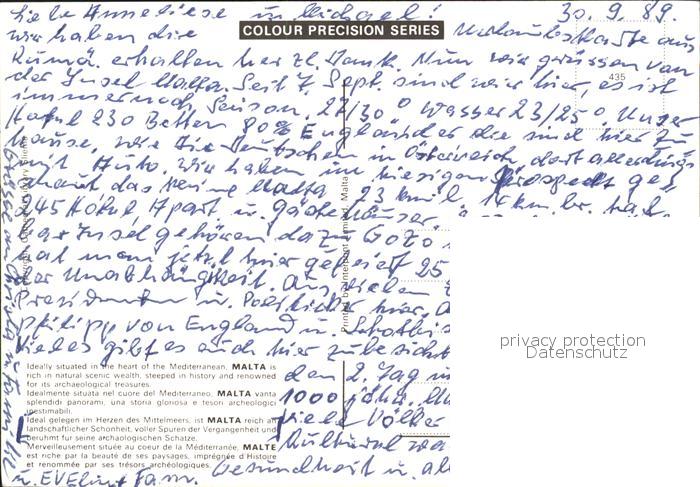 Liebe Anneliese u. Michael! 30.9.89.
wir haben die Urlaubskarte aus
COLOUR PRECISION SERIES
Rumä. erhalten herzl. Dank. Nun wir grüssen von
der Insel Malta. Seit 7. Sept. sind wir hier, es ist
435
immernoch Saison. 27/30° Wasser 23/25°. Unser
Hotel 230 Betten 80% Engländer die sind hier zu
Hause, wie die Deutschen in Österreich, dort allerdings
mit Auto. Wir haben im hiesigen Prospekt ge-
schaut das kleine Malta 23 km l. 14 km. br. hat
245 Hotel, Apart. u. Gästehäuser.
zur Insel gehören dazu Gozo
hat man jetzt hier gefeiert 25
der Unabhängigkeit. Aus vielen
Presidenten u. Politiker hier.
Philipp von England u. Schottl
vieles gibt es auch hier zu besicht
den 2. Tag
1000 jähr.
viele Völker
Kulturel
Gesundheit u. al
Grüsse von
u. EVELine Fam.
Printed by Interprint Limited, Malta
Ideally situated in the heart of the Mediterranean, MALTA is
rich in natural scenic wealth, steeped in history and renowned
for its archaeological treasures.
Idealmente situata nel cuore del Mediterraneo, MALTA vanta
splendidi panorami, una storia gloriosa e tesori archeologici
inestimabili.
Ideal gelegen im Herzen des Mittelmeers, ist MALTA reich an
landschaftlicher Schonheit, voller Spuren der Vergangenheit und
beruhmt fur seine archaologischen Schatze.
Merveilleusement située au coeur de la Méditerranée, MALTE
est riche par la beauté de ses paysages, imprégnée d'Histoire
et renommée par ses trésors archéologiques.
privacy protection
Datenschutz